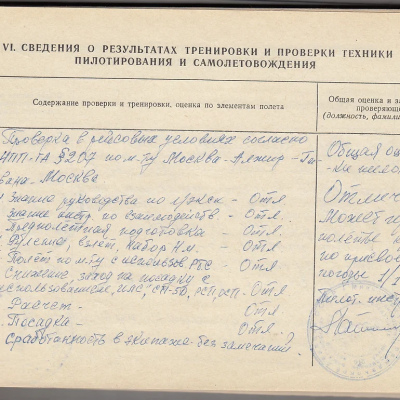 VI. СВЕДЕНИЯ О РЕЗУЛЬТАТАХ ТРЕНИРОВКИ И ПРОВЕРКИ ТЕХНИКИ
ПИЛОТИРОВАНИЯ И САМОЛЕТОВОЖДЕНИЯ
Содержание проверки и тренировки, оценка по элементам полета
Общая оценка и за
проверяюще
(должность, фамили
Проверка в рейсовых условиях согласно
НПП-ГА § 207 по м-ту Москва-Алжир-Ги-
вана-Москва
Знание руководства по - Отл.
Знание инстр. по взаимодейств. - Отл.
Предполетная подготовка - Отл.
Руление, взлет, набор Н.м. - Отл.
Полет по м-ту с использов. РТС - Отл.
Снижение, заход на посадку с
использованием, ИЛС, СП-50, РСП, ОСП - Отл
Расчет - Отл.
Посадка - Отл.
Сработанность в экипаже - без замечаний.
Общая оц
Отлич
Может
полеты
по присво
погоды
Пилот. инст